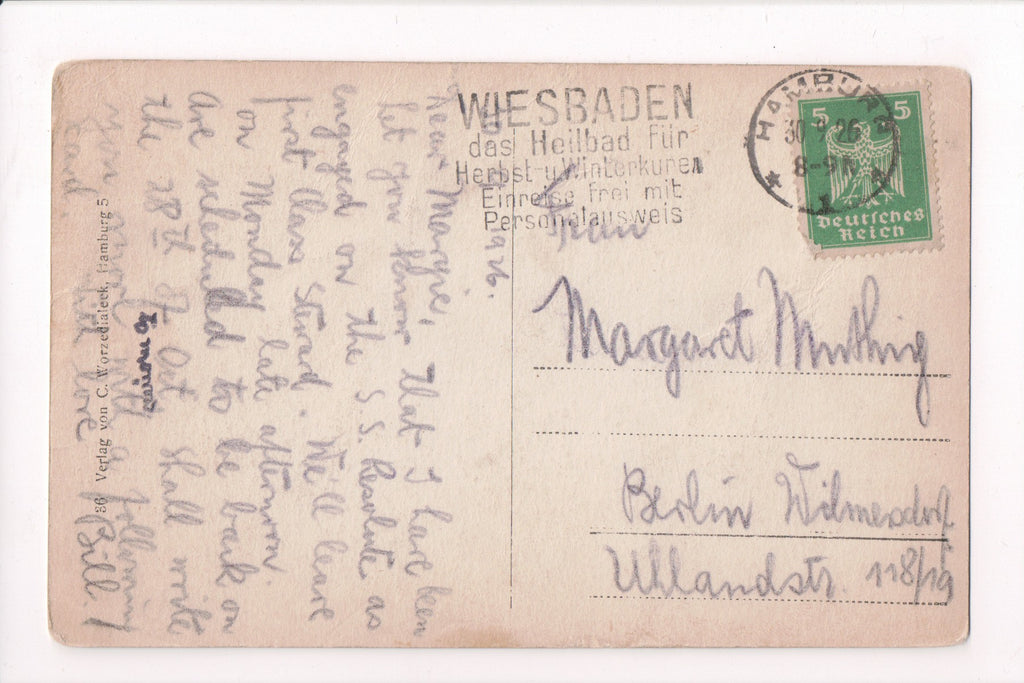 1926.
Dear Margie, that I have been
let you know
engaged on the S.S. Resolute as
first class steward. We'll leave
on Monday late afternoon.
Are scheduled to be back on
the 28th of Oct shall write
you with a following
card till Love Bill.
36 Verlag von C. Worzedialeck, Hamburg 5
WIESBADEN
das Heilbad für
Herbst- u. Winterkuren
Einreise frei mit
Personalausweis
HAMBURG
30.9.26
8-9N
* 1 *
5 5
Deutsches
Reich
Frau
Margaret Muthing
Berlin Wilmersdorf
Uhlandstr. 118/19